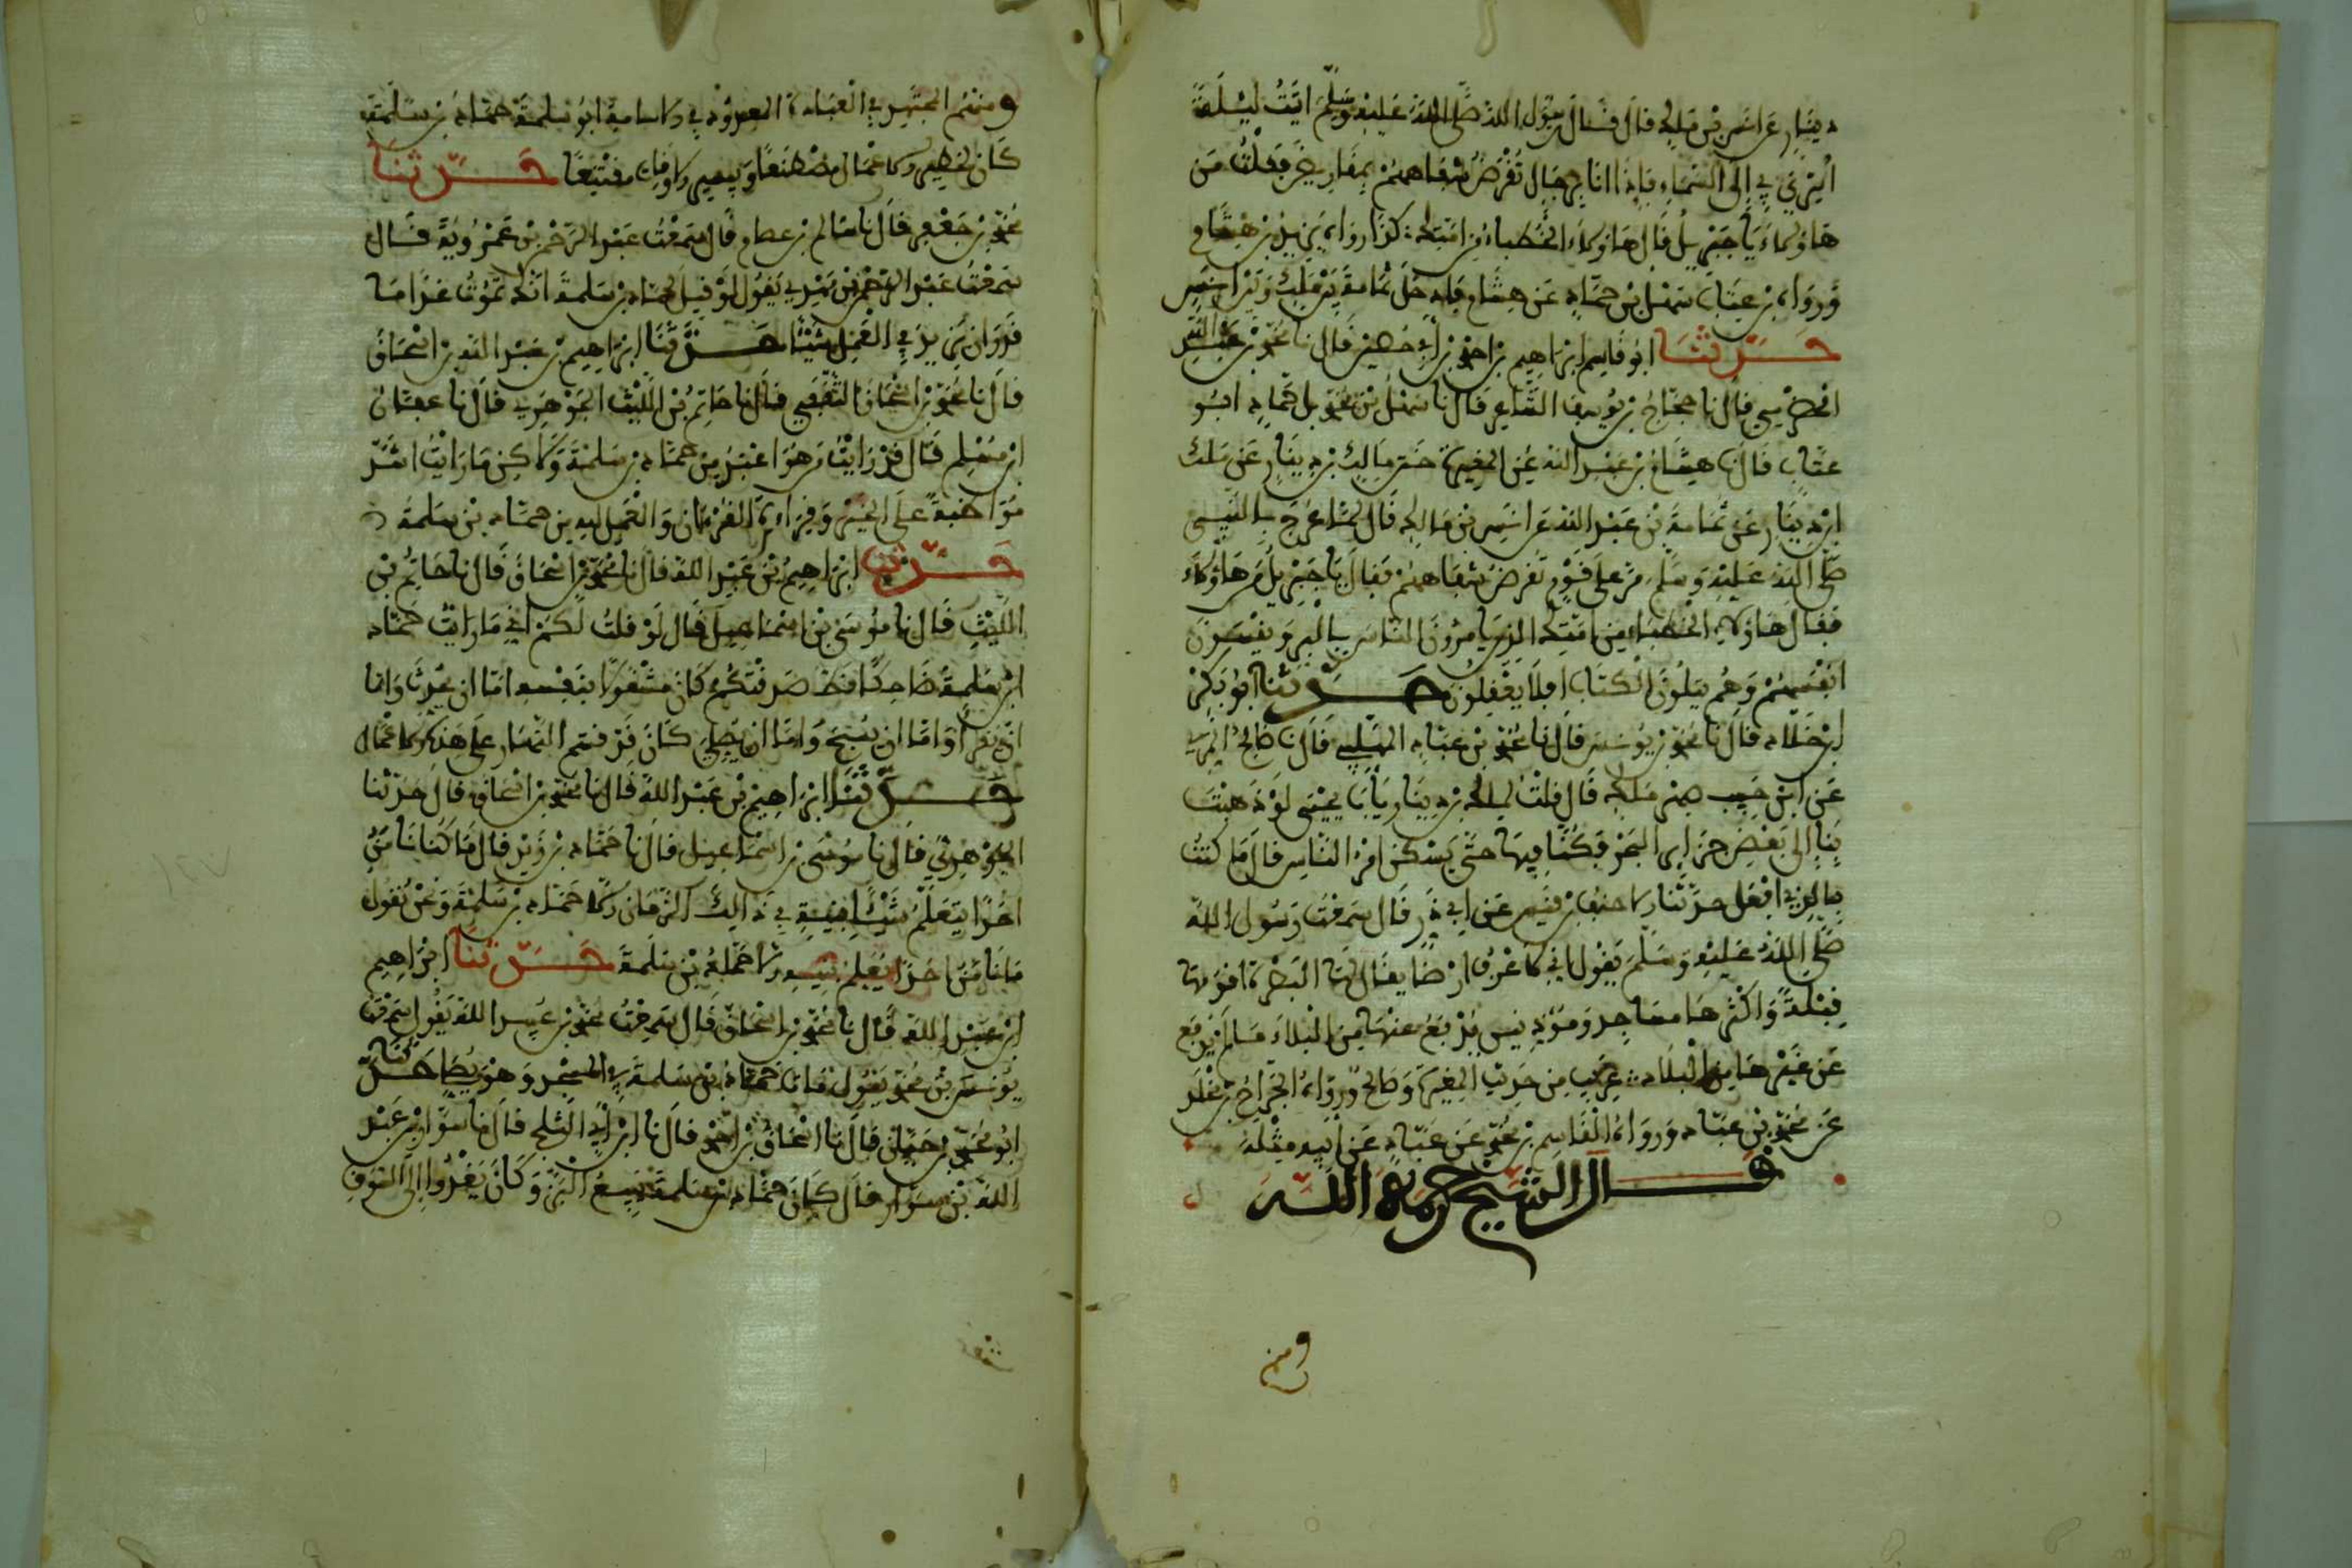 دينار عن انس بن ملك قال قال رسول الله صلى الله عليه وسلم اتيت ليلة
اسري بي إلى السماء فإذا انا برجال تقرض شفاههم بمقاريض فقلت من
هاؤلاء يا جبريل قال هاؤلاء الخطباء من امتك كذا رواه يزيد بن هشام
ورواه بن عتاب سهل بن حماد عن هشام فادخل ثمامة بين ملك وبين انس
حدثنا ابو قاسم ابراهيم بن احمد بن أبي حصين قال نا محمد بن عبد الله
الحضرمي قال نا حجاج بن يوسف الشاعر قال نا سهل بن حماد ابو
عتاب قال نا هشام بن عبد الله عن المغيرة ختن مالك بن دينار عن ملك
ابن دينار عن ثمامة بن عبد الله عن انس بن مالك قال لما عرج بالنبي
صلى الله عليه وسلم مر على قوم تقرض شفاههم فقال يا جبريل من هاؤلاء
فقال هاؤلاء الخطباء من امتك الذين يامرون الناس بالبر وينسون
انفسهم وهم يتلون الكتاب افلا يعقلون حدثنا ابو بكر
ابن خلاد قال نا محمد بن يونس قال نا محمد بن عباد المهلبي قال نا صالح المري
عن حبيب قال قلت لملك بن دينار يا أبا يحيى لو ذهبت
بنا إلى بعض جزاير البحر فكنا فيها حتى يسكن امر الناس قال ما كنت
بالذي افعل حدثنا الاحنف بن قيس عن ابي ذر قال سمعت رسول الله
صلى الله عليه وسلم يقول إني لاعرف ارضا يقال لها البصرة اقومها
قبلة واكثرها مساجد ومؤذنين يدفع عنها من البلاء ما لم يدفع
عن غيرها من البلاد غريب من حديث المغيرة وصالح ورواه الجراح بن مخلد
عن محمد بن عباد ورواه القاسم بن محمد عن عباد عن ابيه مثله
قال الشيخ رحمه الله
ومنهم
ومنهم المجتهد في العبادة المعدود في الامامة ابو سلمة حماد بن سلمة
كان لخطير الاعمال مصطنعا وبيسير الاوقات مقتنعا حدثنا
محمد بن جعفر قال نا سالم بن عصام قال سمعت عبد الرحمن بن عمرويه قال
سمعت عبد الرحمن بن مهدي يقول لو قيل لحماد بن سلمة انك تموت غدا ما
قدر ان يزيد في العمل شيئا حدثنا ابراهيم بن عبد الله بن اسحاق
قال نا محمد بن اسحاق الثقفي قال نا حاتم بن الليث الجوهري قال نا عفان
ابن مسلم قال قد رايت من هو اعبد من حماد بن سلمة ولاكن ما رايت اشد
مواظبة على الخير وقراءة القرءان والعمل لله من حماد بن سلمة
حدثنا ابراهيم بن عبد الله قال نا محمد بن اسحاق قال نا حاتم بن
الليث قال نا موسى بن اسماعيل قال لو قلت لكم اني ما رايت حماد
ابن سلمة ضاحكا قط صدقتكم كان مشغولا بنفسه اما ان يحدث واما
ان يقرأ واما ان يسبح واما ان يصلي كان قد قسم النهار على هذه الاعمال
حدثنا ابراهيم بن عبد الله قال نا محمد بن اسحاق قال حدثنا
الجوهري قال نا موسى بن اسماعيل قال نا حماد بن زيد قال ما كنا ناتي
احدا يتعلم شيئا بنية في ذالك الزمان الا حماد بن سلمة ونحن نقول
ما ناتي احدا يعلم بنية الا حماد بن سلمة حدثنا ابراهيم
ابن عبد الله قال نا محمد بن اسحاق قال سمعت محمد بن عبيد الله يقول سمعت
يونس بن محمد يقول مات حماد بن سلمة في المسجد وهو يصلي حدثنا
ابو محمد بن حيان قال نا اسحاق بن احمد قال نا ابن أبي الثلج قال نا سوار بن عبد
الله بن سوار قال كان حماد بن سلمة يبيع البز وكان يغدوا إلى السوق